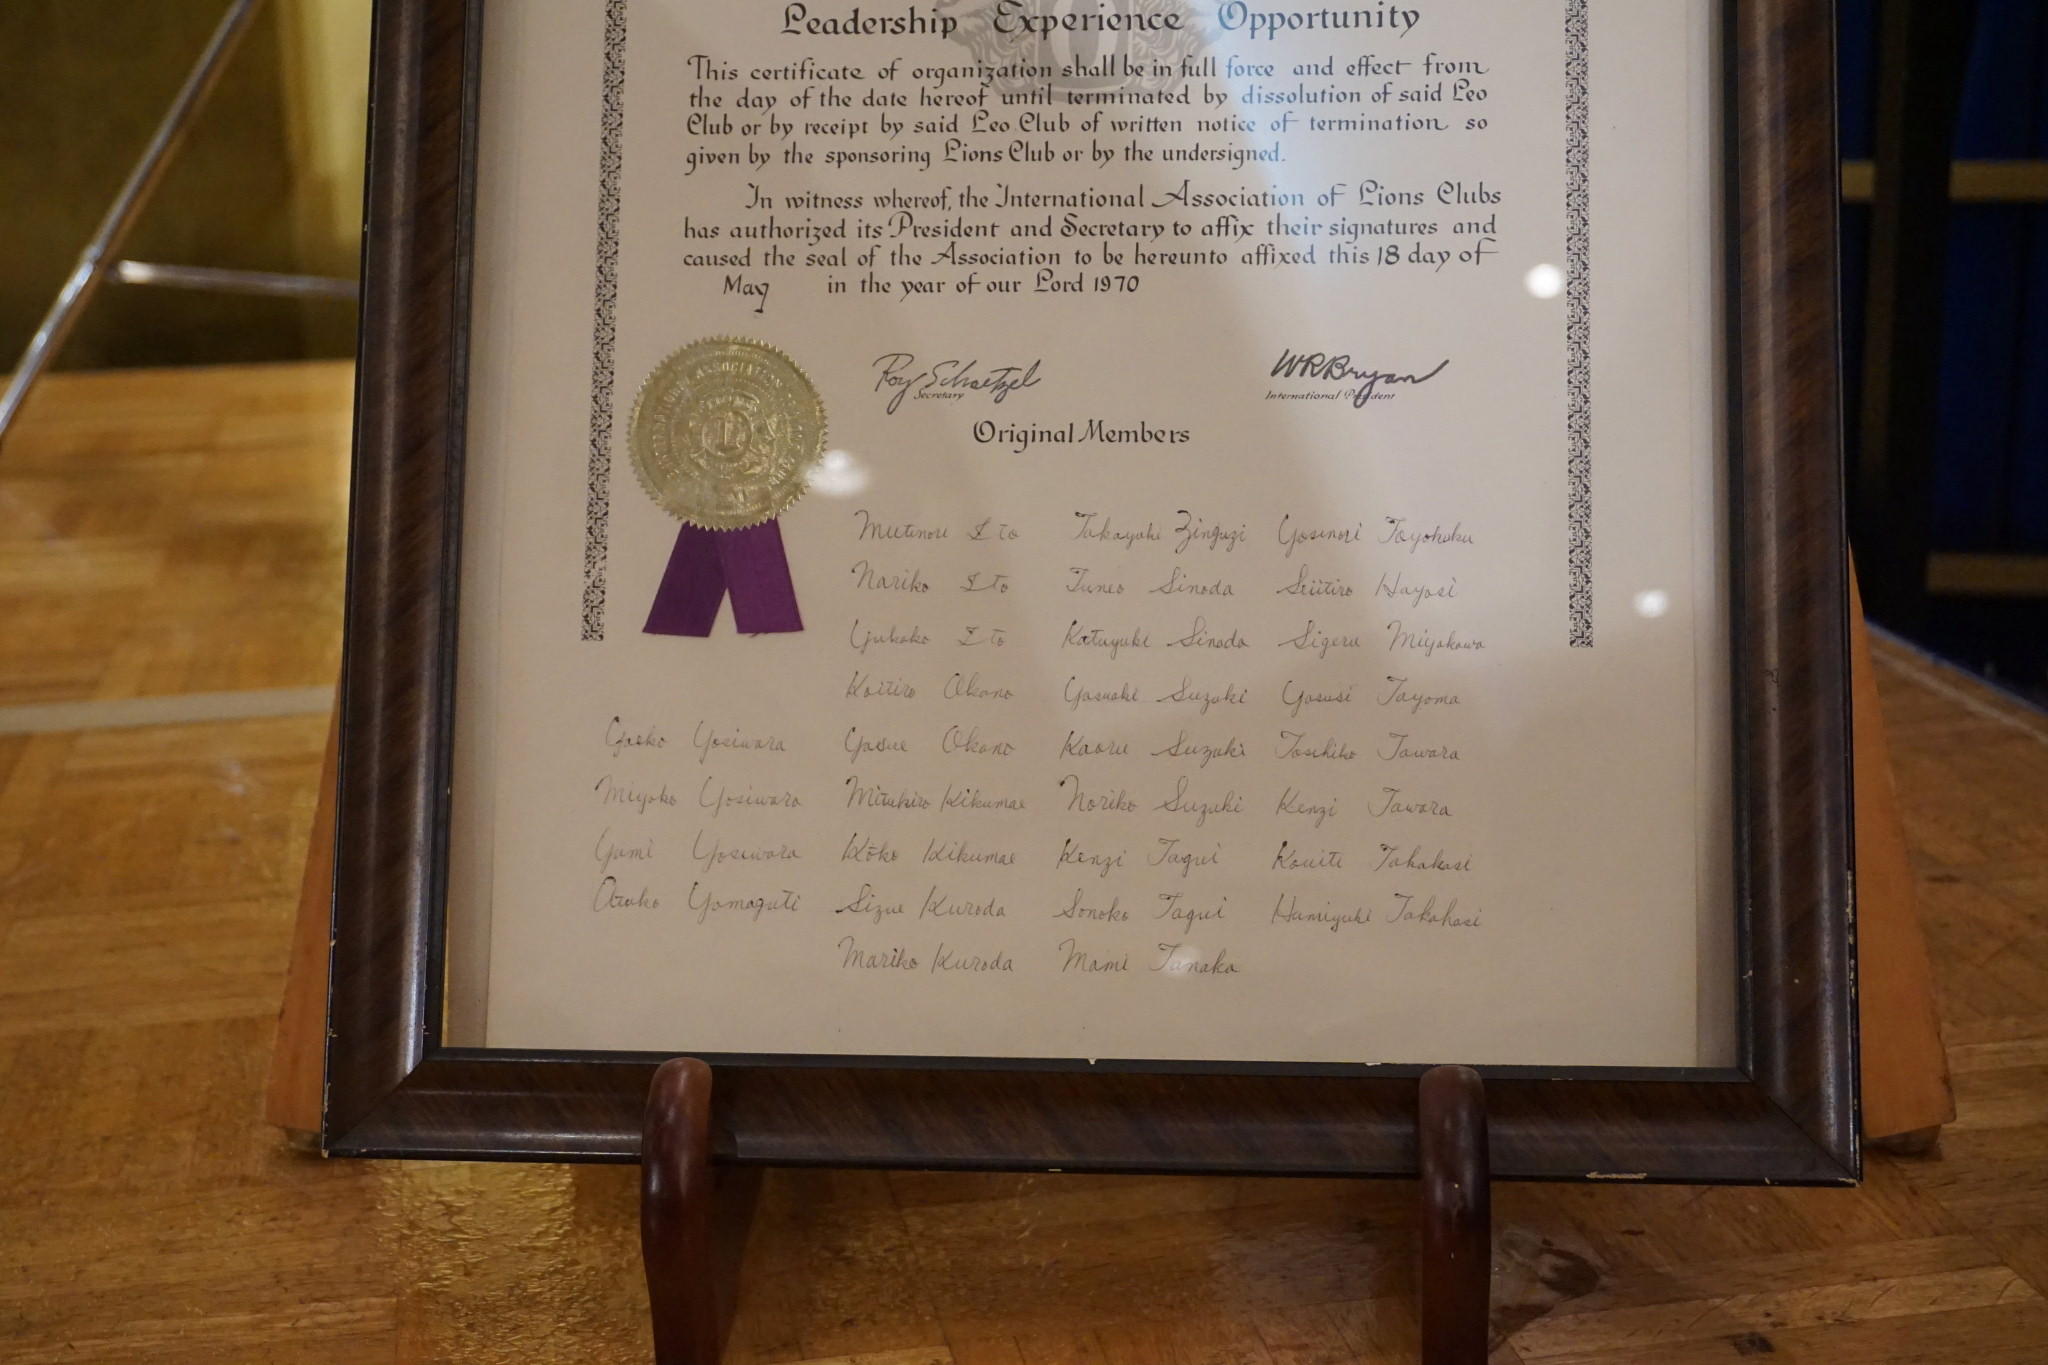 Leadership Experience Opportunity
This certificate of organization shall be in full force and effect from
the day of the date hereof until terminated by dissolution of said Leo
Club or by receipt by said Leo Club of written notice of termination so
given by the sponsoring Lions Club or by the undersigned.
In witness whereof, the International Association of Lions Clubs
has authorized its President and Secretary to affix their signatures and
caused the seal of the Association to be hereunto affixed this 18 day of
May in the year of our Lord 1970
Roy Schaetzel WRBryan
Secretary International President
Original Members
Mutinori Ito Takayuki Zinguzi Yosinori Toyohuku
Nariko Ito Tuneo Sinoda Seiitiro Hayasi
Yukako Ito Katuyuki Sinoda Sigeru Miyakawa
Koitiro Okano Yasuaki Suzuki Yasusi Tayama
Yaeko Yosiwara Yasue Okano Kaoru Suzuki Tosihiko Tawara
Miyoko Yosiwara Mituhiro Kikumae Noriko Suzuki Kenzi Tawara
Yumi Yosiwara Kōko Kikumae Kenzi Tagui Kouiti Takahasi
Atuko Yamaguti Sizue Kuroda Sonoko Tagui Humiyuki Takahasi
Mariko Kuroda Mami Tanaka